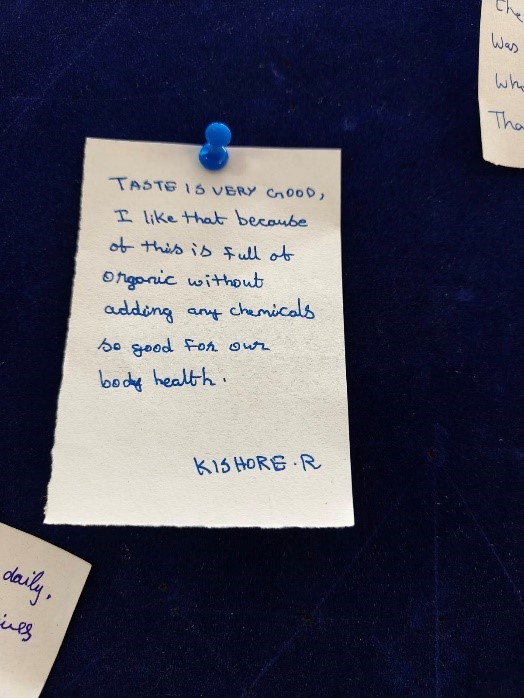 the
was
Tha
TASTE IS VERY GOOD,
I like that because
of this is full of
organic without
adding any chemicals
so good for our
body health.
KISHORE.R
daily,